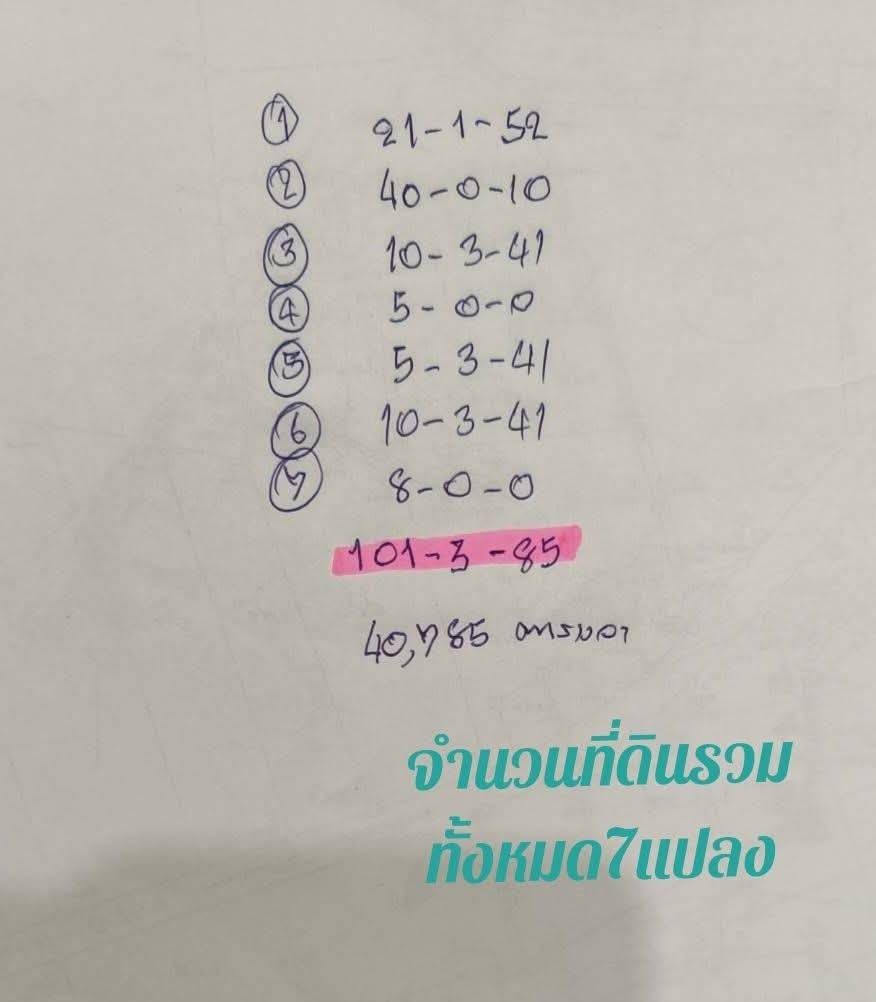 ① 21-1-52
② 40-0-10
③ 10-3-41
④ 5-0-0
⑤ 5-3-41
⑥ 10-3-41
⑦ 8-0-0
101-3-85
40,785 ตารางวา
จำนวนที่ดินรวม
ทั้งหมด7แปลง